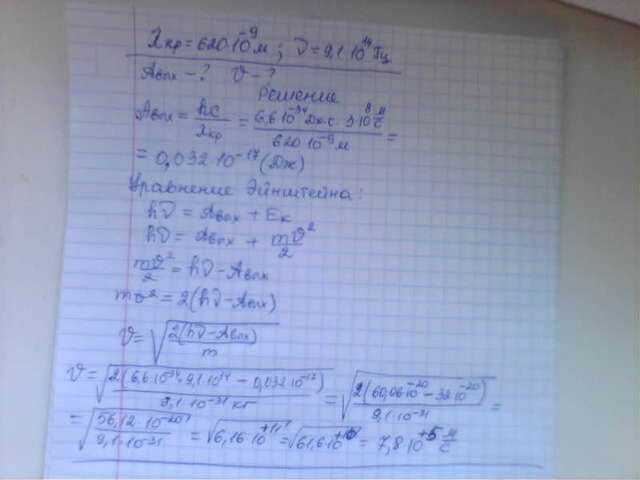 λкр = 620·10⁻⁹ м ; ν = 9,1·10¹⁴ Гц
Aвых - ? ϑ - ?
Решение
Aвых = hc/λкр = 6,6·10⁻³⁴ Дж·с · 3·10⁸ м/с / 620·10⁻⁹ м =
= 0,032·10⁻¹⁷ (Дж)
Уравнение Эйнштейна:
hν = Aвых + Eк
hν = Aвых + mϑ²/2
mϑ²/2 = hν - Aвых
mϑ² = 2(hν - Aвых)
ϑ = √(2(hν - Aвых)/m)
ϑ = √(2(6,6·10⁻³⁴·9,1·10¹⁴ - 0,032·10⁻¹⁷)/9,1·10⁻³¹ кг) = √(2(60,06·10⁻²⁰ - 32·10⁻²⁰)/9,1·10⁻³¹) =
= √(56,12·10⁻²⁰/9,1·10⁻³¹) = √6,16·10⁺¹¹ = √61,6·10⁺¹⁰ = 7,8·10⁺⁵ м/с